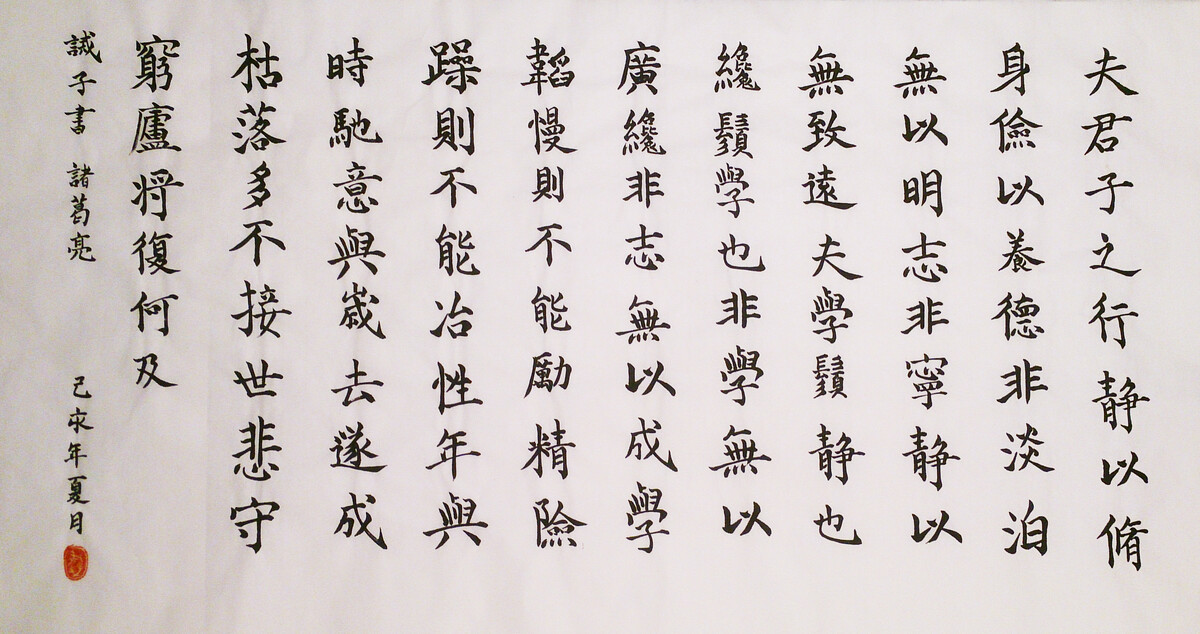 夫君子之行静以脩
身儉以養德非淡泊
無以明志非寧静以
無致遠夫學鬚静也
纔鬚學也非學無以
廣纔非志無以成學
韜慢則不能勵精險
躁則不能冶性年與
時馳意與嵗去遂成
枯落多不接世悲守
窮廬将復何及
誡子書 諸葛亮 己亥年夏月